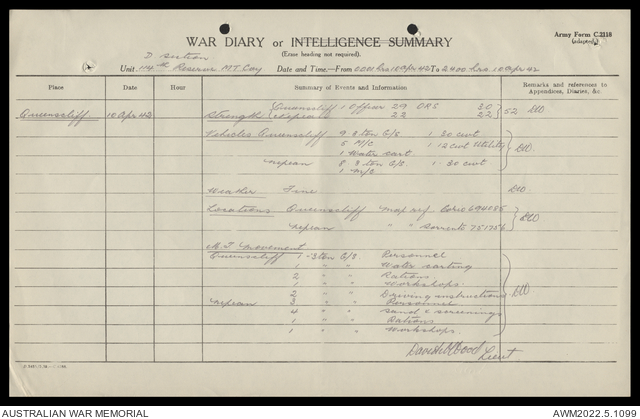 Army Form C.2118
(adapted)
WAR DIARY or INTELLIGENCE SUMMARY
(Erase heading not required).
D section
Unit. 114th Reserve M.T. Coy Date and Time—From 0001 hrs 10 Apr 42 To 2400 hrs 10 Apr 42
Place Date Hour Summary of Events and Information Remarks and references to Appendices, Diaries, &c
Queenscliff 10 Apr 42 Strength Queenscliff 1 Officer 29 ORS 30
Nepean 22 22 52
Vehicles Queenscliff 9 3 ton G/S 1 30 cwt
5 M/C 1 12 cwt Utility
1 Water cart
Nepean 8 3 ton G/S. 1 30 cwt
1 M/C
Weather Fine
Locations Queenscliff Map ref. Corio 694085
Nepean " " Sorrento 751756
M.T. Movement
Queenscliff 1 - 3 ton G/S Personnel
1 " " Water carting
2 " " Rations
1 " " Workshops.
2 " " Driving instructions
Nepean 3 " " Personnel
4 " " Sand & screenings
1 " " Rations
1 " " Workshops.
Lieut
AUSTRALIAN WAR MEMORIAL
AWM2022.5.1099